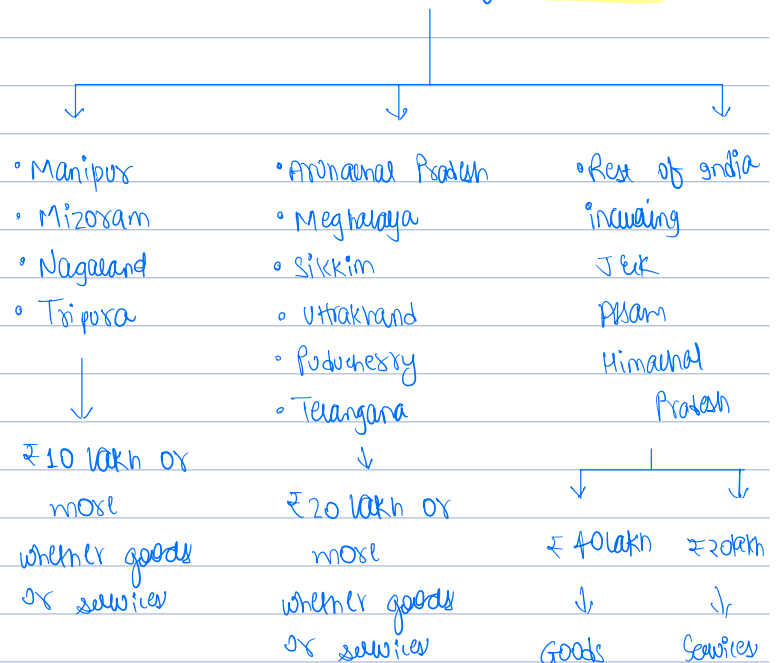 • Manipur
• Mizoram
• Nagaland
• Tripura
₹10 lakh or
more
whether goods
or services
• Arunachal Pradesh
• Meghalaya
• Sikkim
• Uttrakhand
• Puducherry
• Telangana
₹20 lakh or
more
whether goods
or services
• Rest of India
including
J&K
Assam
Himachal
Pradesh
₹40lakh
Goods
₹20lakh
Services